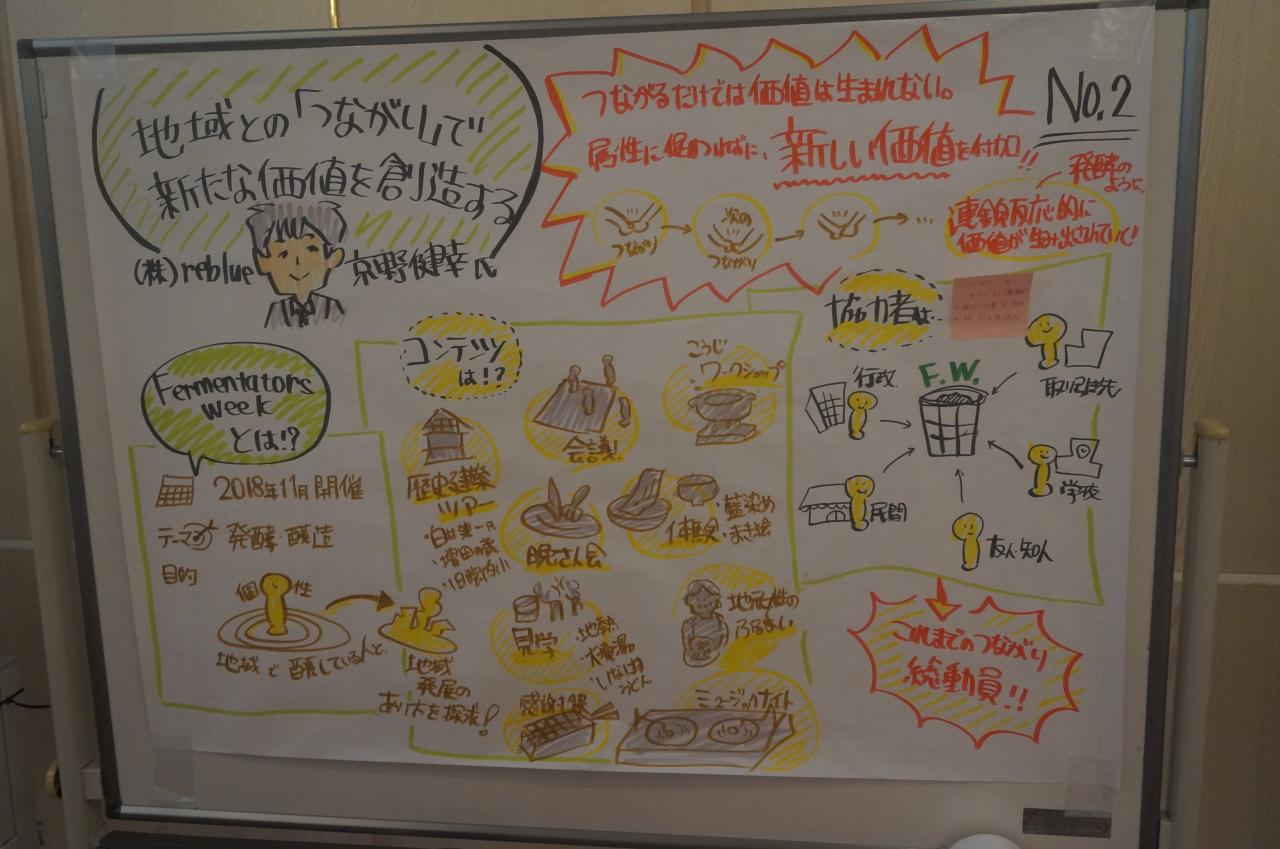 地域との「つながり」で
新たな価値を創造する
(株)reblue 京野健幸氏
つながるだけでは価値は生まれない。
属性に促わればに、新しい価値を付加!!
No.2
発酵の
ように
つながり
次の
つながり
…
連鎖反応的に
価値が生み出されていく
Fermentators
week
とは!?
2018年11月開催
テーマ 発酵・醸造
目的
個性
地域で醸している人と、
地域
発展の
あり方を探求!
コンテンツ
は!?
歴史建築
ツアー
・旧
・増田の蔵
・旧
会議!
こうじ
ワークショップ
晩さん会
体験
・藍染め
・まき絵
見学
・地熱
・大噴湯
・いなにわ
うどん
地元女性の
ふるまい
感謝祭
ミュージックナイト
協力者は…
F.W.
行政
取り引き先
民間
学校
友人・知人
これまでのつながり
総動員!!